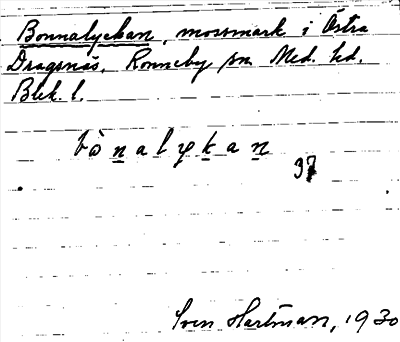 Bonnalyckan, mossmark i Östra
Dragsnäs, Ronneby sn Med. hd.
Blek. l.
bònalykan
37
Sven Hartman, 1930